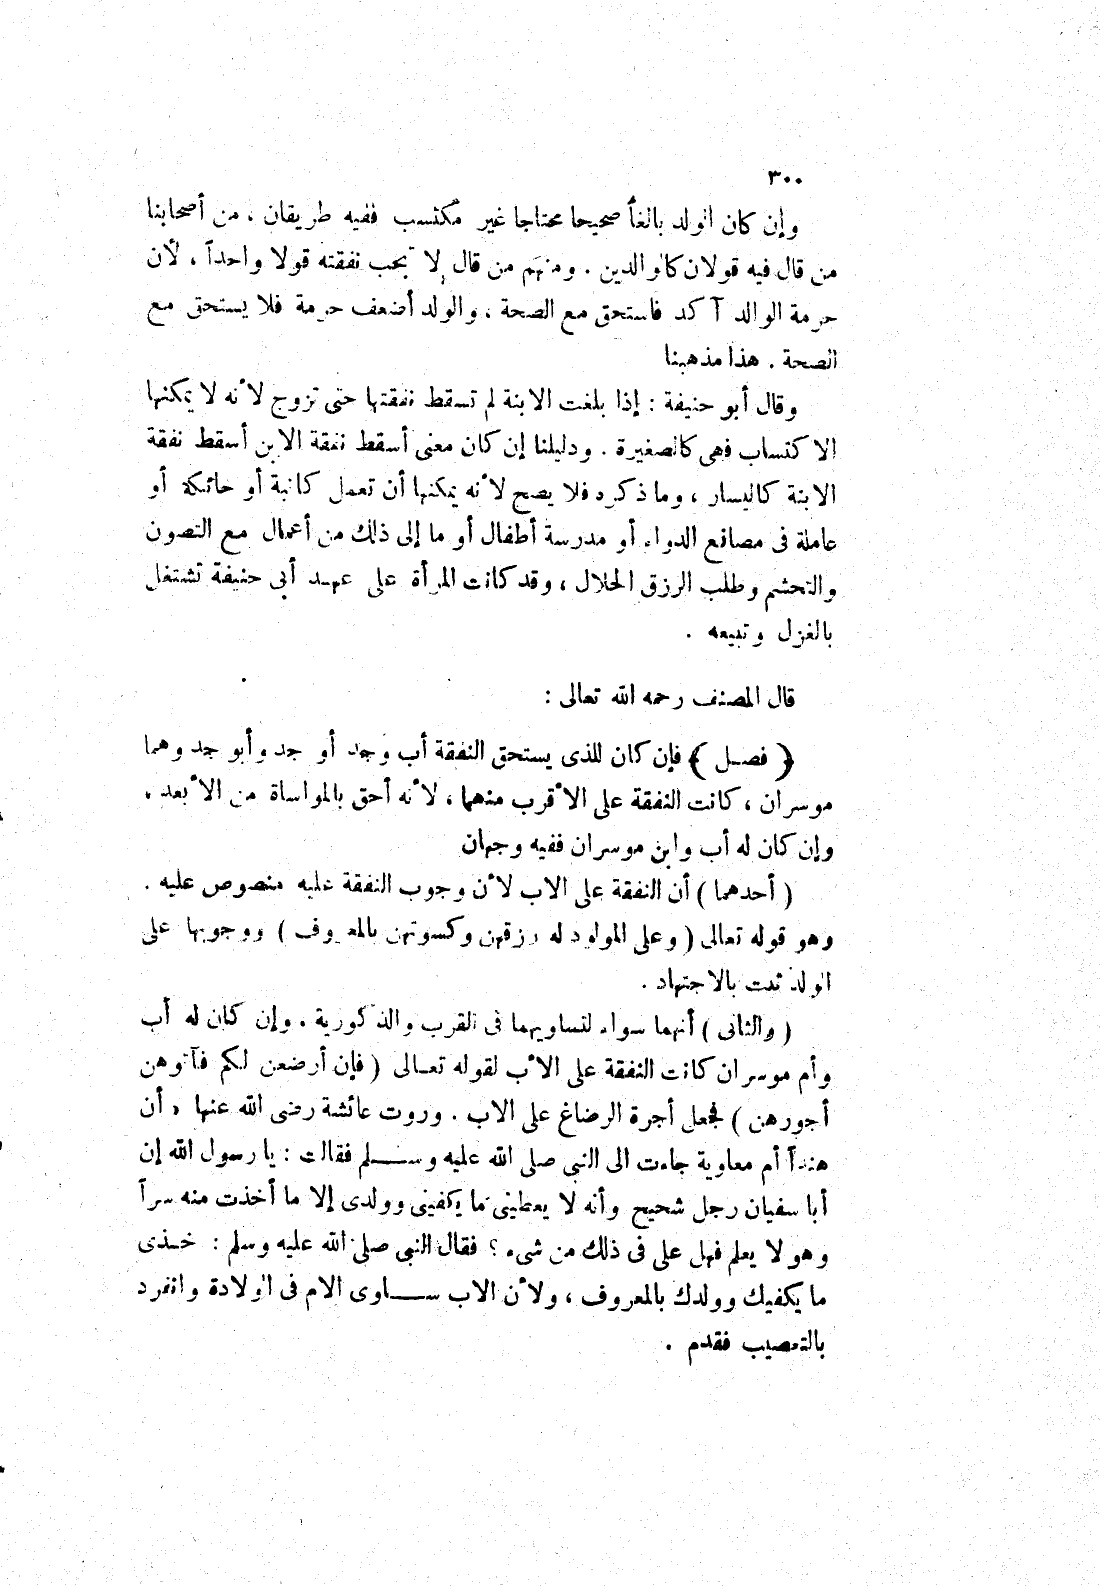 ٣٠٠
وإن كان الولد بالغاً صحيحا محتاجا غير مكتسب ففيه طريقان ، من أصحابنا
من قال فيه قولان كالوالدين . ومنهم من قال لا تجب نفقته قولا واحداً ، لأن
حرمة الوالد آكد فاستحق مع الصحة ، والولد أضعف حرمة فلا يستحق مع
الصحة . هذا مذهبنا
وقال أبو حنيفة : إذا بلغت الابنة لم تسقط نفقتها حتى تزوج لأنه لا يمكنها
الاكتساب فهى كالصغيرة . ودليلنا إن كان معنى أسقط نفقة الابن أسقط نفقة
الابنة كاليسار ، وما ذكره فلا يصح لأنه يمكنها أن تعمل كاتبة أو حائكة أو
عاملة فى مصانع الدواء أو مدرسة أطفال أو ما إلى ذلك من أعمال مع التصون
والتحشم وطلب الرزق الحلال ، وقد كانت المرأة على عهد أبى حنيفة تشتغل
بالغزل وتبيعه .
قال المصنف رحمه الله تعالى :
﴿ فصل ﴾ فإن كان للذى يستحق النفقة أب وجد أو جد وأبو جد وهما
موسران ، كانت النفقة على الأقرب منهما ، لأنه أحق بالمواساة من الأبعد ،
وإن كان له أب وابن موسران ففيه وجهان
( أحدهما ) أن النفقة على الاب لأن وجوب النفقة عليه منصوص عليه .
وهو قوله تعالى ( وعلى المولود له رزقهن وكسوتهن بالمعروف ) ووجوبها على
الولد ثبت بالاجتهاد .
( والثانى ) أنهما سواء لتساويهما فى القرب والذكورية . وإن كان له أب
وأم موسران كانت النفقة على الأب لقوله تعالى ( فإن أرضعن لكم فآتوهن
أجورهن ) فجعل أجرة الرضاع على الاب . وروت عائشة رضى الله عنها ، أن
هنداً أم معاوية جاءت الى النبى صلى الله عليه وسلم فقالت : يا رسول الله إن
أبا سفيان رجل شحيح وأنه لا يعطينى ما يكفينى وولدى إلا ما أخذت منه سراً
وهو لا يعلم فهل على فى ذلك من شىء ؟ فقال النبى صلى الله عليه وسلم : خذى
ما يكفيك وولدك بالمعروف ، ولأن الاب ساوى الام فى الولادة وانفرد
بالتعصيب فقدم .